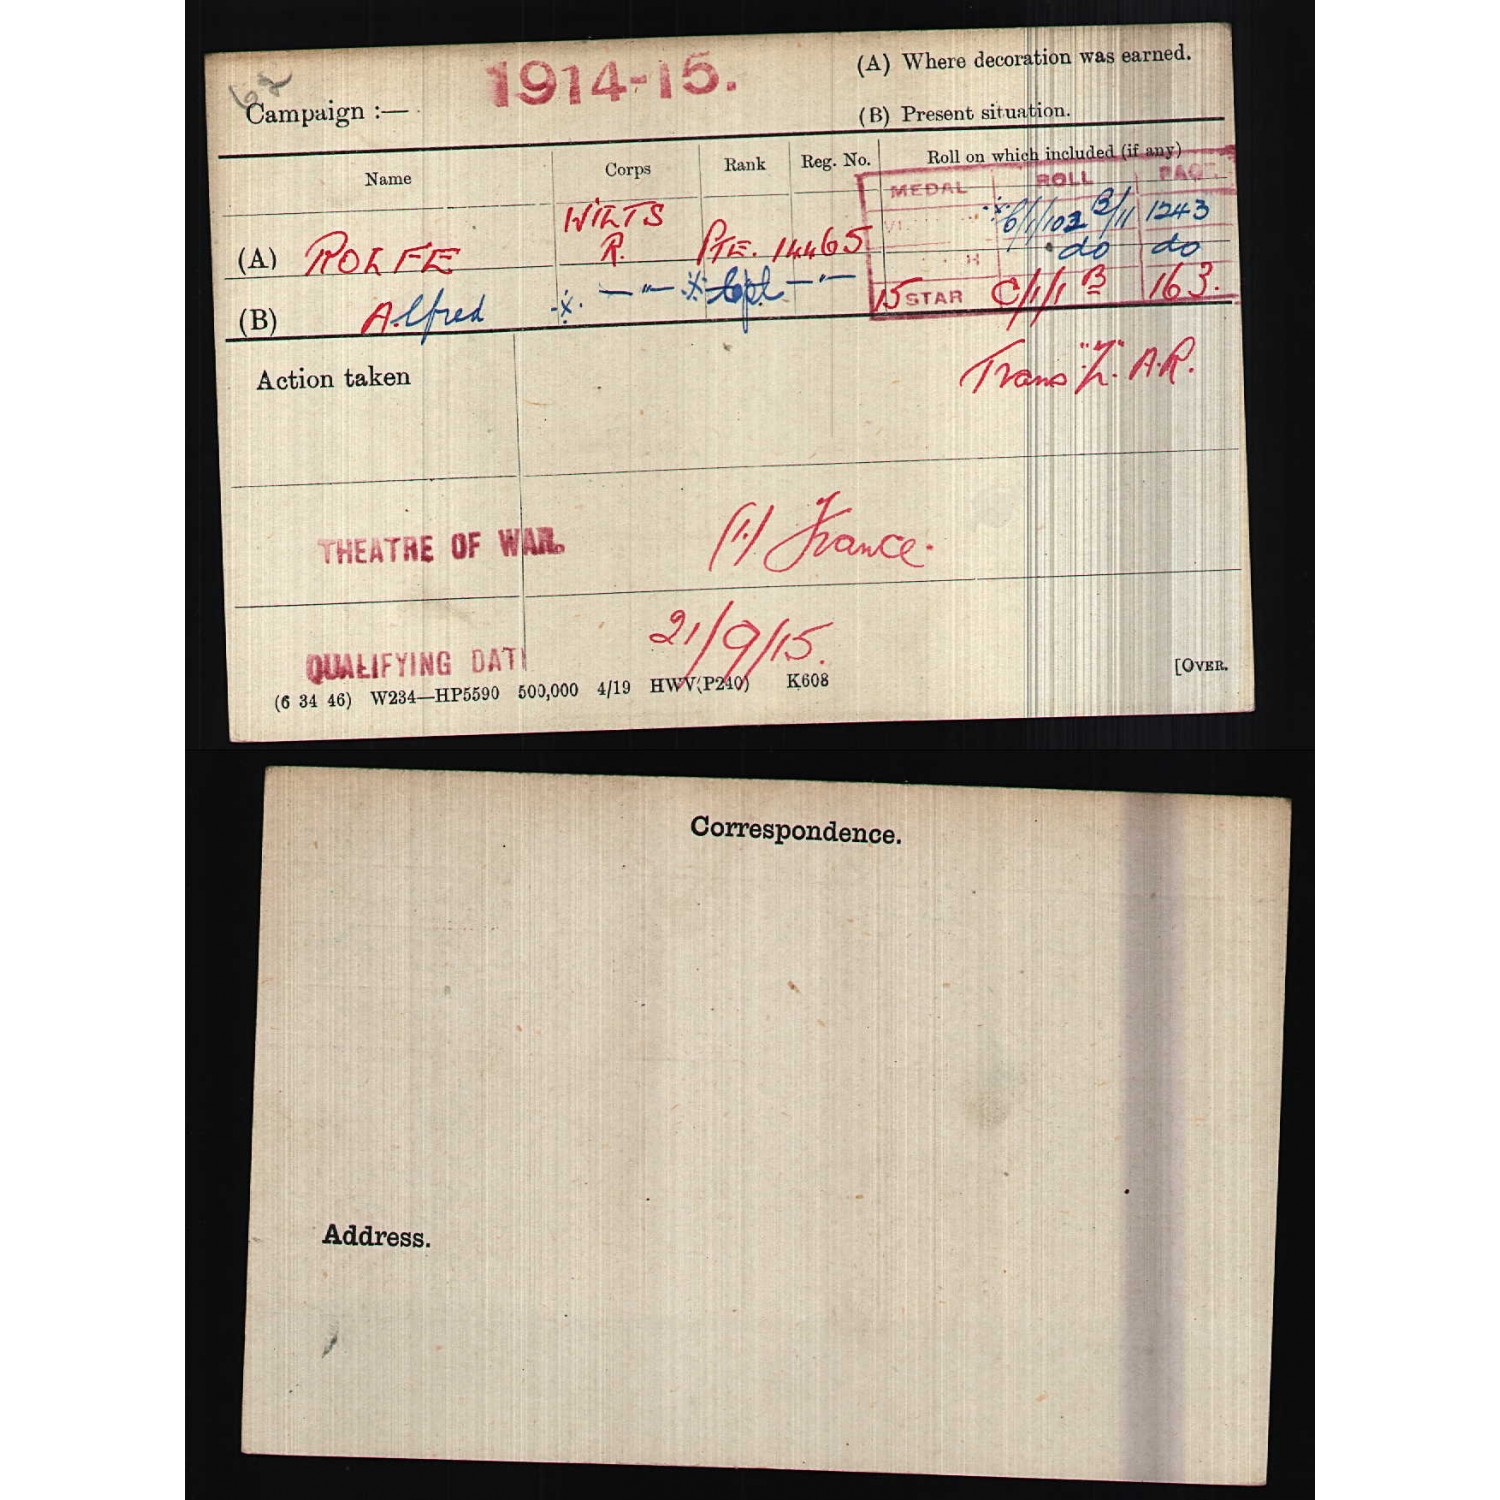 62
Campaign :— 1914-15.
(A) Where decoration was earned.
(B) Present situation.
Name Corps Rank Reg. No. Roll on which included (if any)
MEDAL ROLL PAGE
(A) ROLFE WILTS R. Pte. 14465 1243
do do
(B) Alfred —"— Cpl —"— 15 STAR C/1/1 B 163.
Action taken Trans "Z" A.R.
THEATRE OF WAR. (1) France.
QUALIFYING DATE 21/9/15.
(6 34 46) W234—HP5590 500,000 4/19 HWV(P240) K608
[OVER.
Correspondence.
Address.